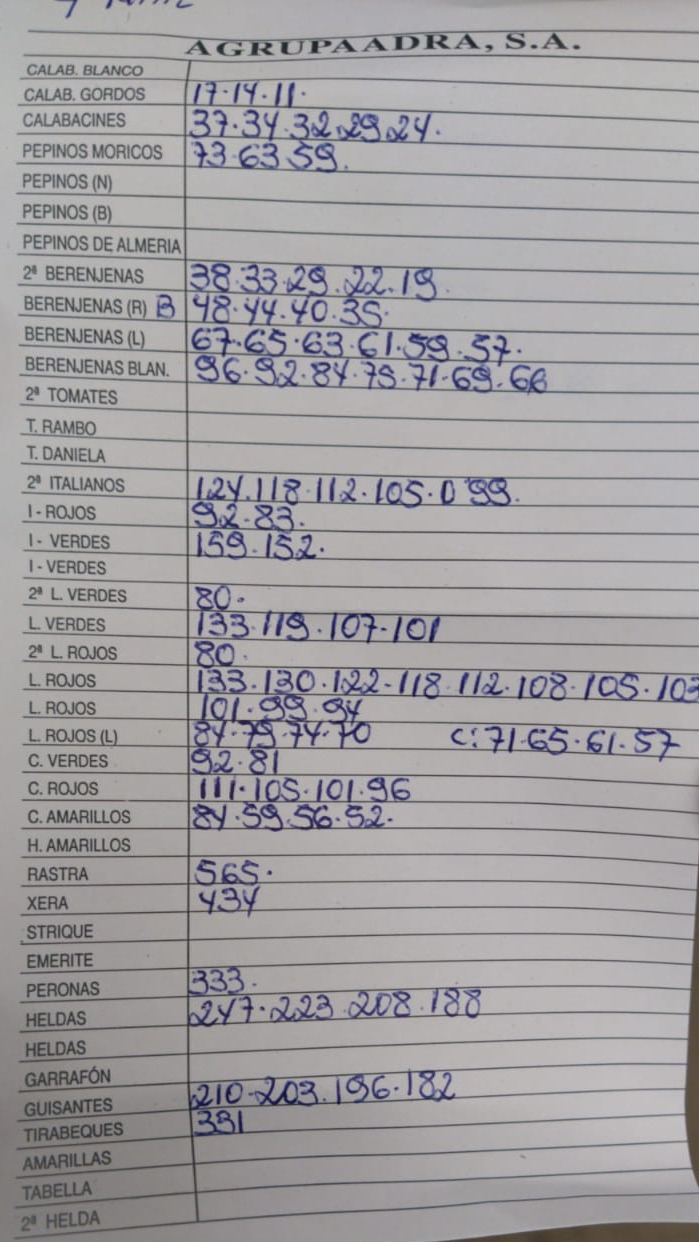 AGRUPAADRA, S.A.
CALAB. BLANCO
CALAB. GORDOS 17.14.11.
CALABACINES 37.34.32.29.24.
PEPINOS MORICOS 73.63.59.
PEPINOS (N)
PEPINOS (B)
PEPINOS DE ALMERIA
2ª BERENJENAS 38.33.29.22.19.
BERENJENAS (R) B 48.44.40.35.
BERENJENAS (L) 67.65.63.61.59.57.
BERENJENAS BLAN. 96.92.84.79.71.69.66
2ª TOMATES
T. RAMBO
T. DANIELA
2ª ITALIANOS 124.118.112.105.0 99.
I - ROJOS 92.83.
I - VERDES 159.152.
I - VERDES
2ª L. VERDES 80.
L. VERDES 133.119.107-101
2ª L. ROJOS 80.
L. ROJOS 133.130.122-118.112.108.105.103
L. ROJOS 101.99.94
L. ROJOS (L) 84.79.74.70 C:71.65.61.57
C. VERDES 92.81
C. ROJOS 111.105.101.96
C. AMARILLOS 84.59.56.52.
H. AMARILLOS
RASTRA 565.
XERA 434
STRIQUE
EMERITE
PERONAS 333.
HELDAS 247.223.208.188
HELDAS
GARRAFÓN
GUISANTES 210-203.196.182
TIRABEQUES 331
AMARILLAS
TABELLA
2ª HELDA